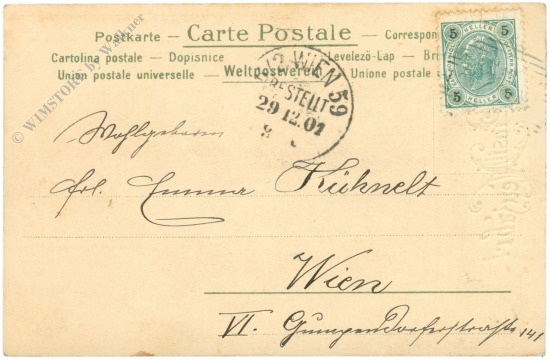 Postkarte — Carte Postale — Correspon
Cartolina postale — Dopisnice Levelező-Lap — Br
Union postale universelle — Weltpostverein Unione postale
5 HELLER 5
5 HELLER 5
WIEN 59
BESTELLT
29.12.01
8
© WIMSTORE by Wallner
Wohlgeboren
Frl. Emma Kühnelt
Wien
VI. Gumpendorferstrasse 141